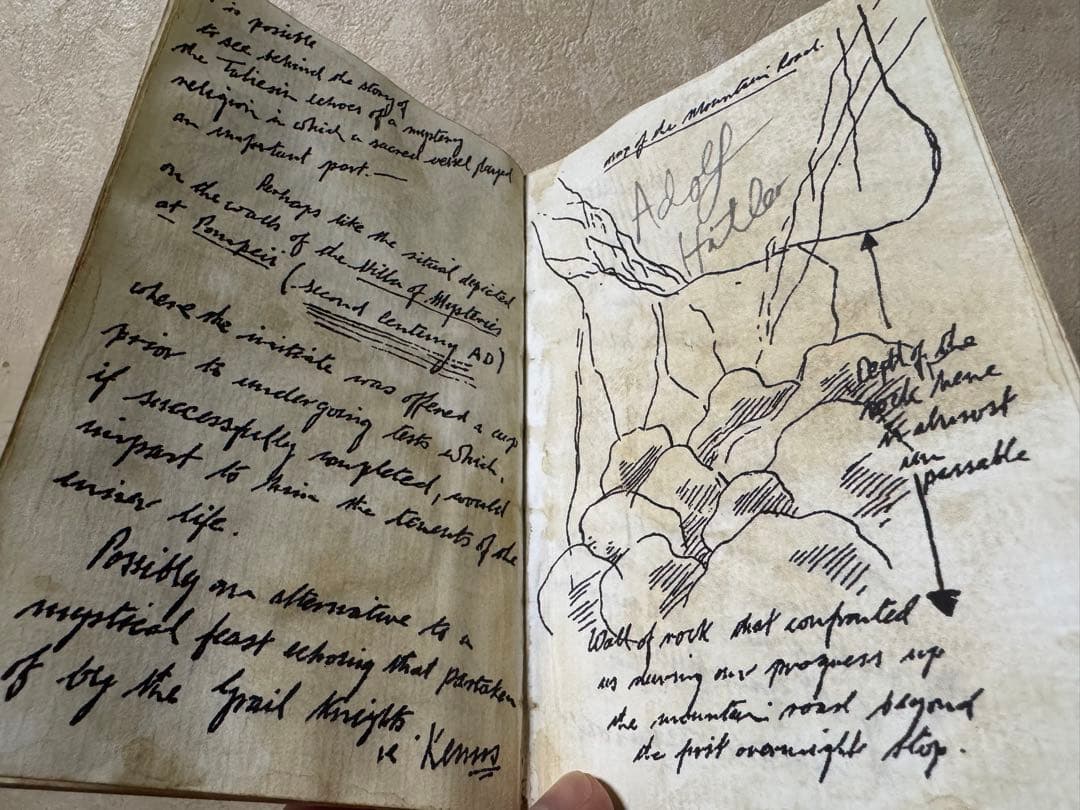 is possible
to see behind the story of
the Taliesin echoes of a mystery
religion in which a sacred vessel played
an important part. —
Perhaps like the ritual depicted
on the walls of the Villa of Mysteries
at Pompeii (second century AD)
where the initiate was offered a cup
prior to undergoing tests which,
if successfully completed, would
impart to him the tenents of the
inner life.
Possibly an alternative to a
mystical feast echoing that partaken
of by the Grail Knights.
ie
Map of the Mountain Road.
Adolf
Hitler
Depth of the
rock here
is almost
un
passable
Wall of rock that confronted
us during our progress up
the mountain road beyond
the first overnight stop.